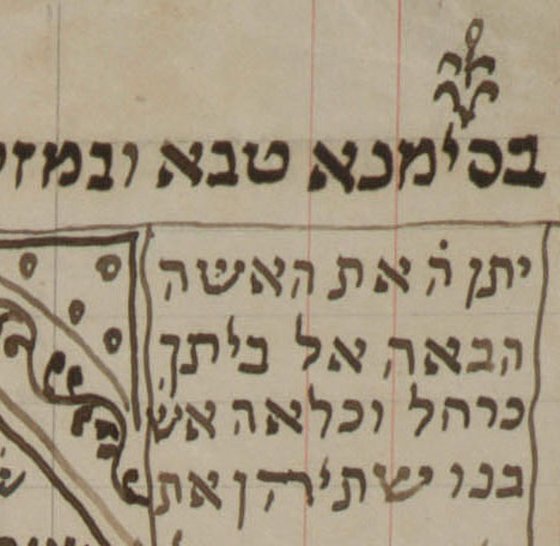 בסימנא טבא ובמזל
יתן ה' את האשה
הבאה אל ביתך
כרחל וכלאה אש
בנו שתיהן את